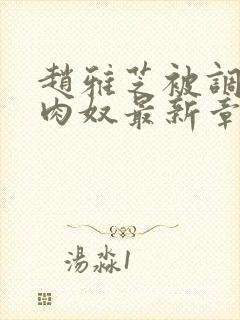 趙雅芝被調
肉奴最新章
湯淼1